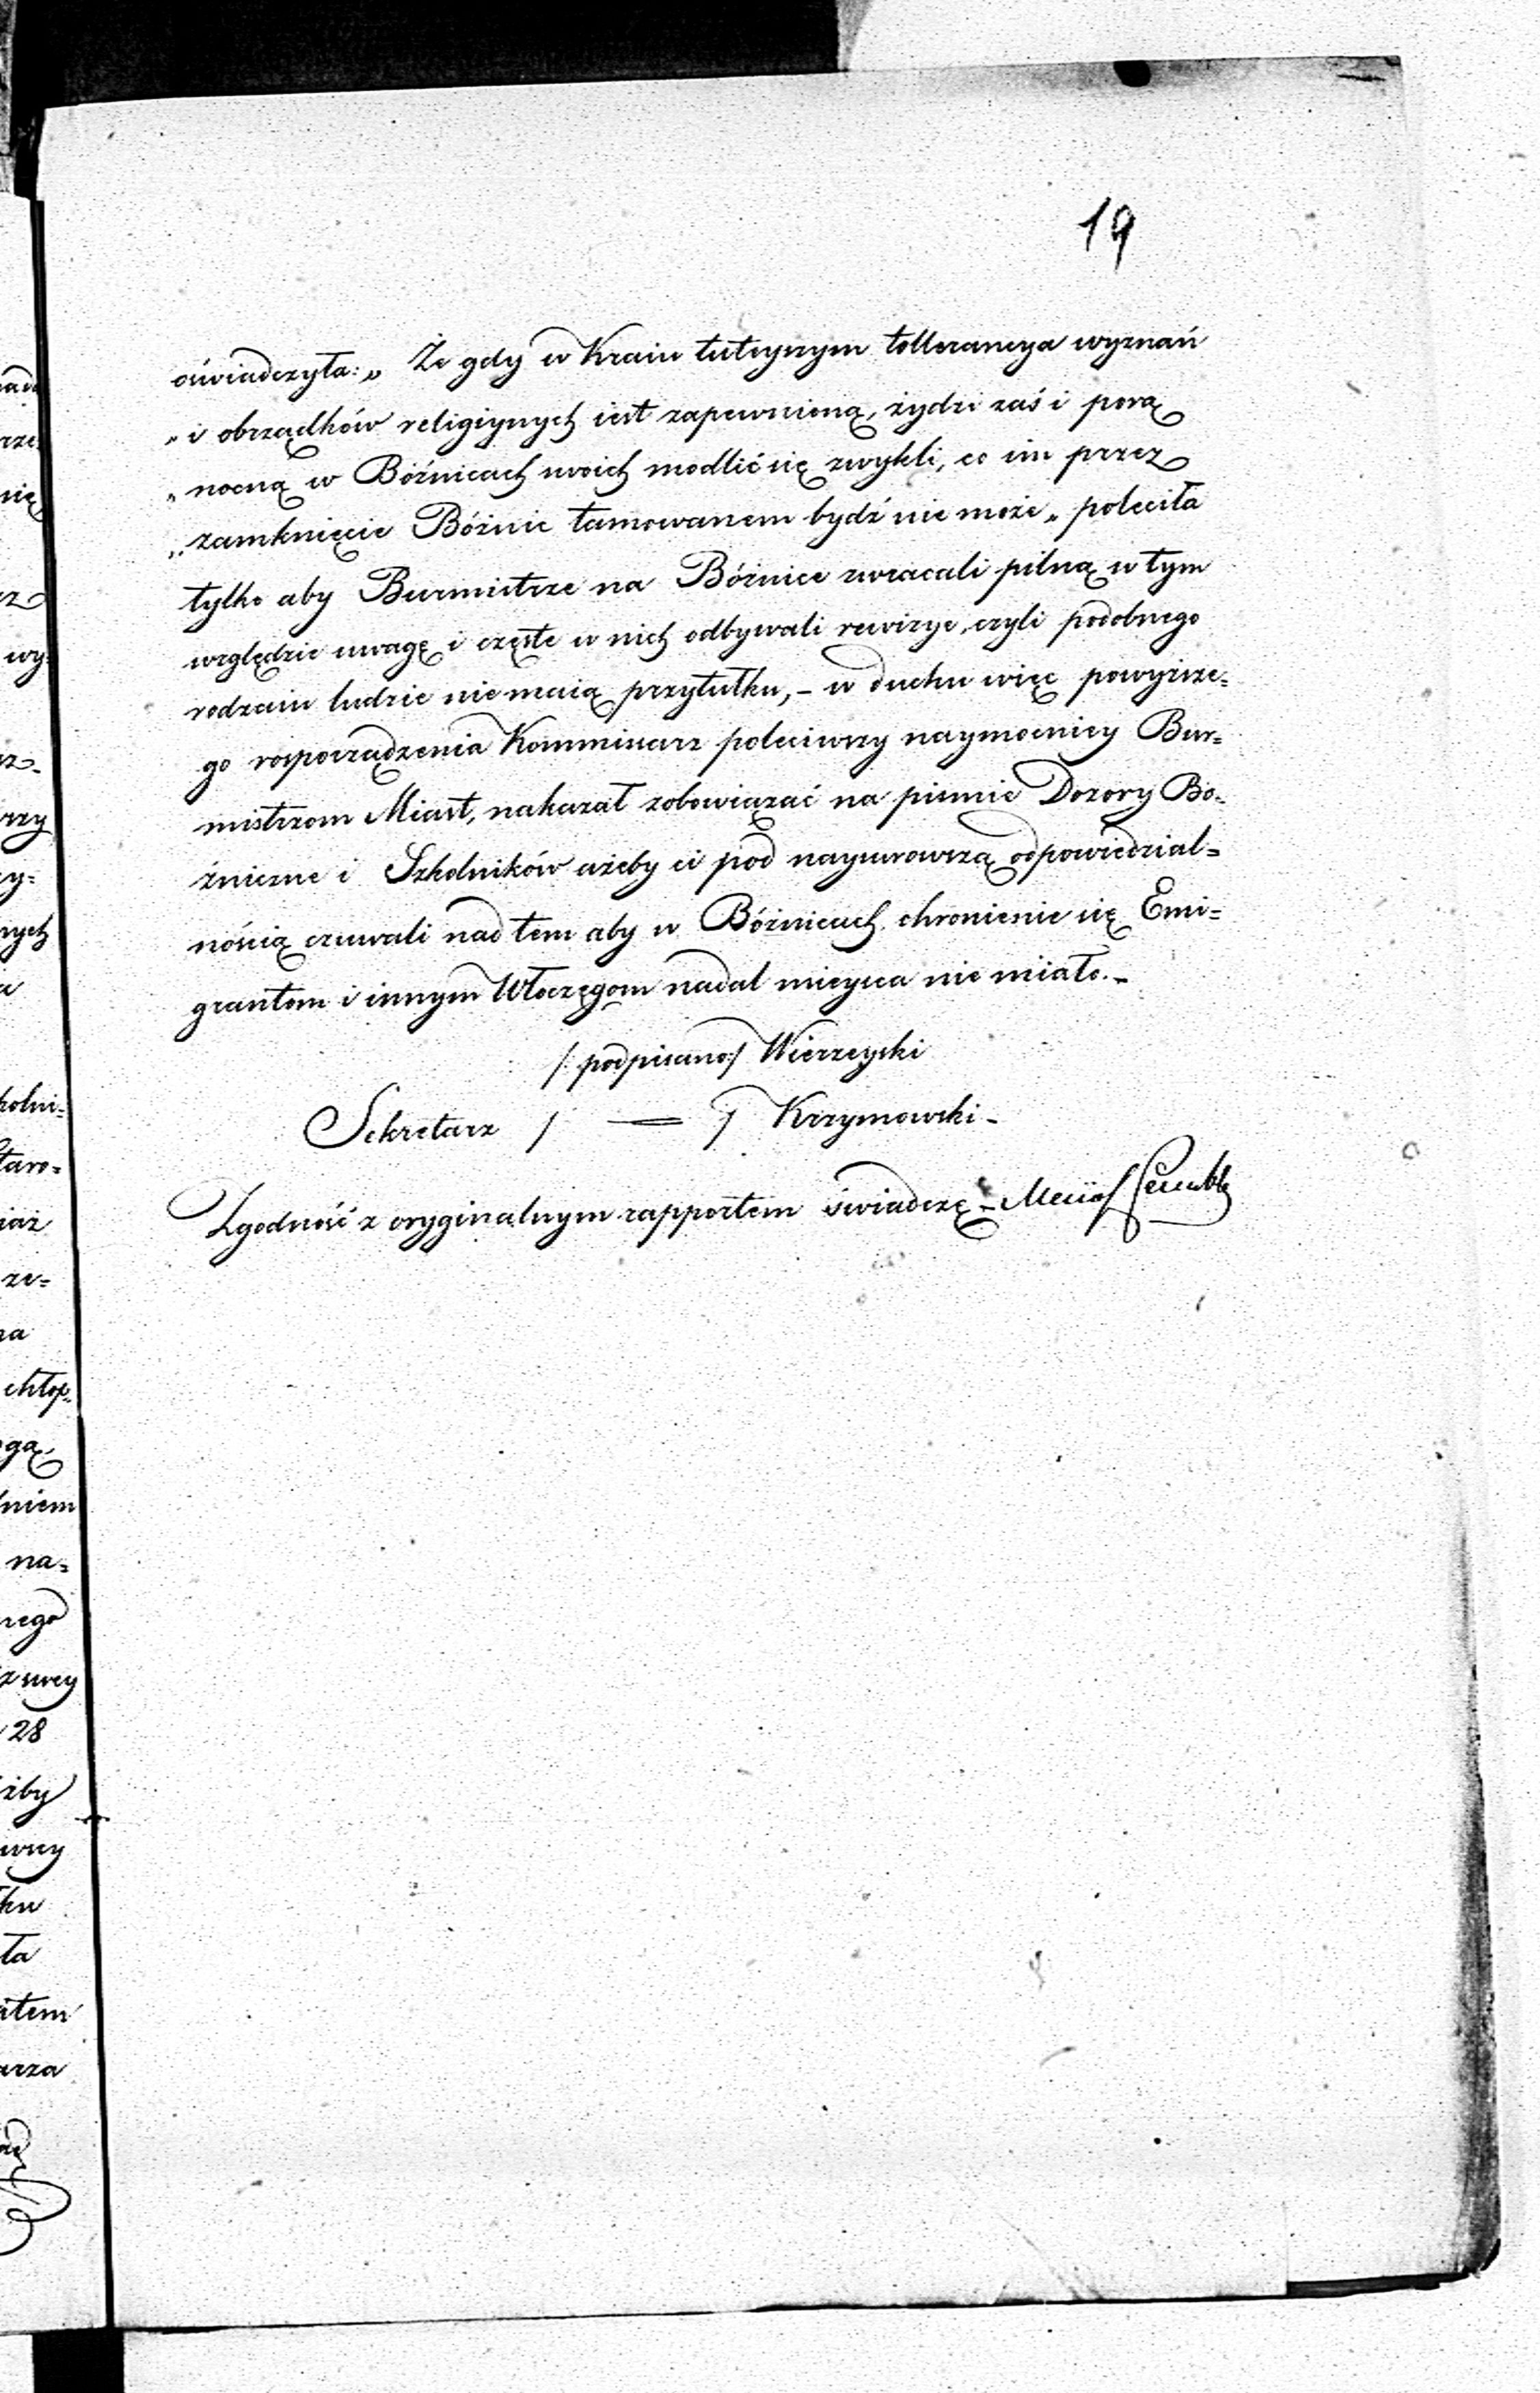 19
oświadczyła: „ Że gdy w Kraiu tuteyszym tollerancya wyznań
„ i obrządków religiynych iest zapewnioną, żydzi zaś i porą
„ nocną w Bóżnicach swoich modlić się zwykli, co im przez
„ zamknięcie Bóżnic tamowanem bydź nie może „ poleciła
tylko aby Burmistrze na Bóżnice zwracali pilną w tym
względzie uwagę i częste w nich odbywali rewizye, czyli podobnego
rodzaiu ludzie nie maią przytułku, – w duchu więc powyższe=
go rosporządzenia Kommissarz poleciwszy naymocniey Bur=
mistrzom Miast, nakazał zobowiązać na pismie Dozory Bo=
żniczne i Szkolników ażeby ci pod naysurowszą odpowiedzial=
nością czuwali nad tem aby w Bóżnicach chronienie się Emi=
grantom i innym Włoczęgom nadal mieysca nie miało. –
/: podpisano :/ Wierzeyski
Sekretarz / = / Krzymowski –
Zgodność z oryginalnym rapportem świadczę –
nych
chłop
niem
na=
28